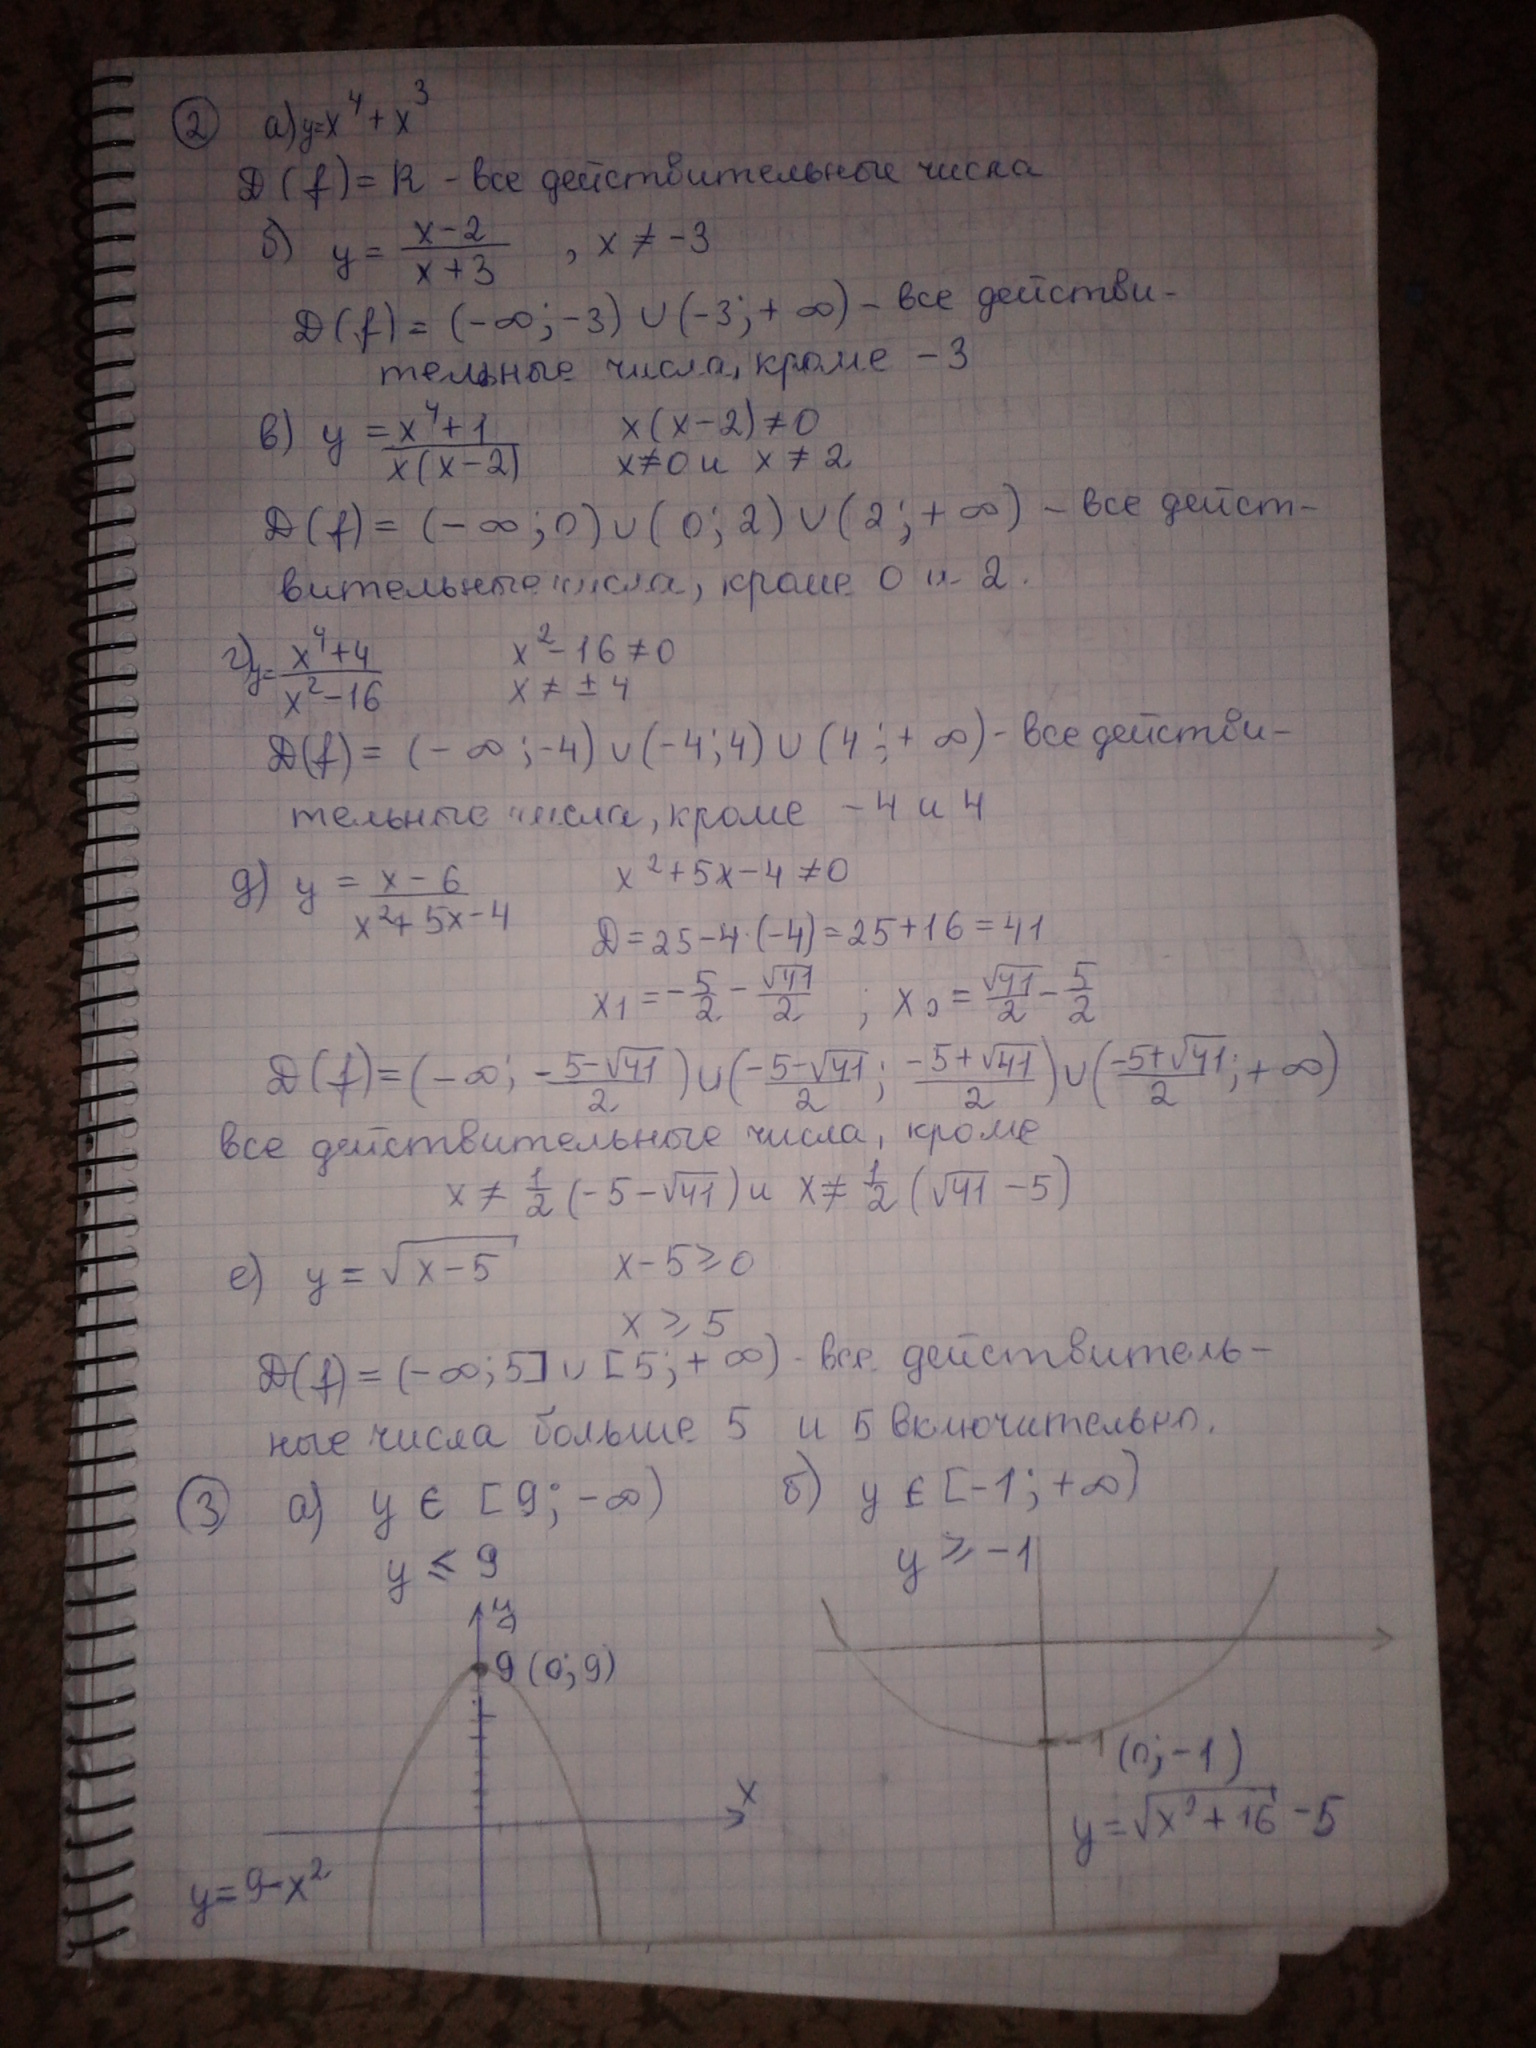 ② а) y=x⁴+x³
D(f)=R - все действительные числа
б) y = (x-2)/(x+3) , x ≠ -3
D(f)= (-∞;-3) ∪ (-3;+∞) - все действи-
тельные числа, кроме -3
в) y = (x⁴+1)/(x(x-2)) x(x-2)≠0
x≠0 и x≠2
D(f)= (-∞;0)∪(0;2)∪(2;+∞) - все дейст-
вительные числа, кроме 0 и 2.
г) y= (x⁴+4)/(x²-16) x²-16≠0
x ≠ ±4
D(f)= (-∞;-4)∪(-4;4)∪(4;+∞) - все действи-
тельные числа, кроме -4 и 4
д) y = (x-6)/(x²+5x-4) x²+5x-4≠0
D=25-4·(-4)=25+16=41
x₁=-5/2-√41/2 ; x₂=√41/2-5/2
D(f)=(-∞; -5-√41/2)∪(-5-√41/2; -5+√41/2)∪(-5+√41/2;+∞)
все действительные числа, кроме
x ≠ 1/2(-5-√41) и x≠ 1/2(√41-5)
е) y=√(x-5) x-5≥0
x ≥ 5
D(f)=(-∞;5]∪[5;+∞) - все действитель-
ные числа больше 5 и 5 включительно.
③ а) y ∈ [9;-∞) б) y ∈ [-1;+∞)
y ≤ 9 y ≥ -1
y
9 (0;9)
x
y=9-x²
-1 (0;-1)
y=√(x²+16) -5